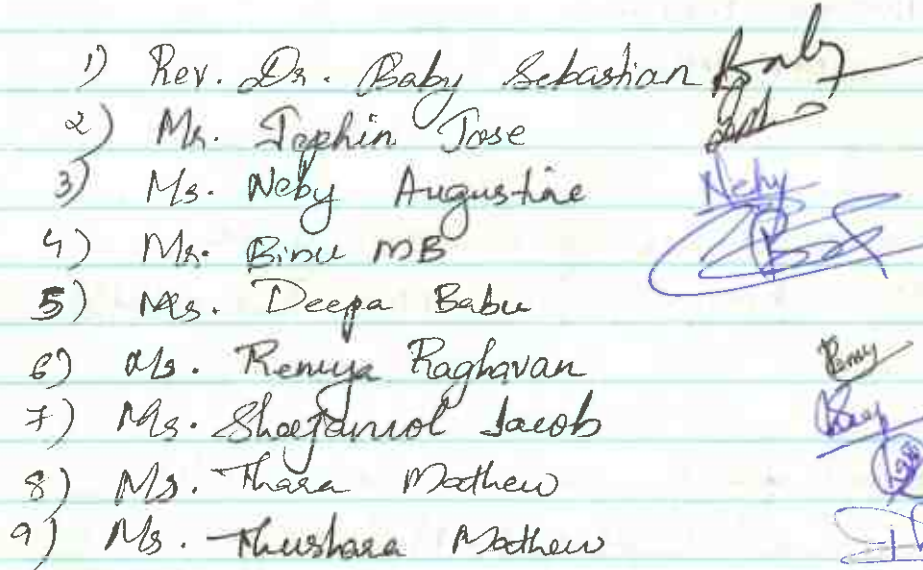 1) Rev. Dr. Baby Sebastian Baby
2) Mr. Jephin Jose
3) Ms. Neby Augustine Neby
4) Mr. Binu MB
5) Ms. Deepa Babu
6) Ms. Remya Raghavan
7) Ms. Jacob
8) Ms. Thara Mathew
9) Ms. Thushara Mathew